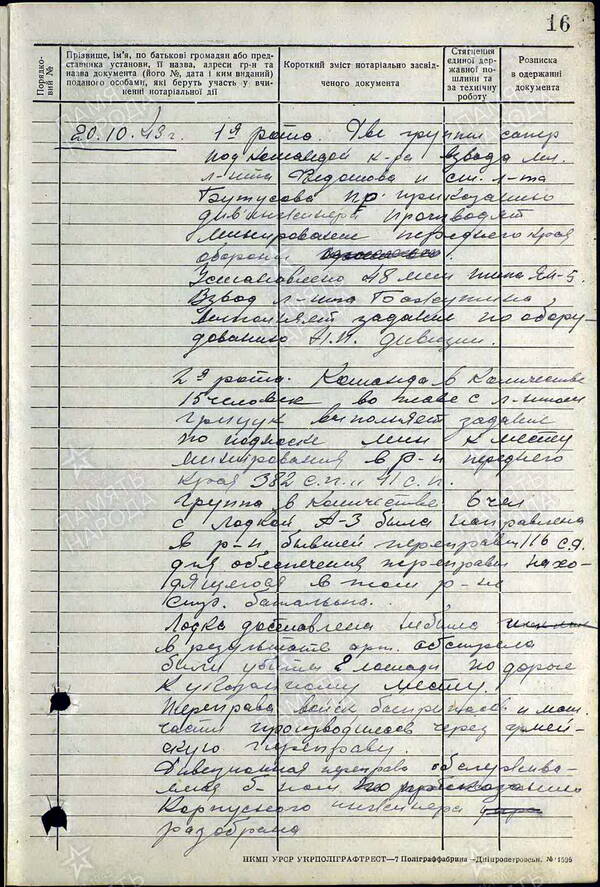 16
Порядко-
вий №
Прізвище, ім'я, по батькові громадян або пред-
ставника установи, її назва, адреси гр-н та
назва документа (його №, дата і ким виданий)
поданого особами, які беруть участь у вчи-
ненні нотаріальної дії
Короткий зміст нотаріально засвід-
ченого документа
Стягнення
єдиної дер-
жавної по-
шлини та
за технічну
роботу
Розписка
в одержанні
документа
20.10.43 г. 1я рота. Две группы сапер
под командой к-ра взвода мл.
л-нта Федотова и ст. л-та
Бутусова пр. приказанию
дивинженера производят
минирование переднего края
обороны
Установлено 48 мин типа ЯМ-5.
Взвод л-нта Бажутина
выполняет задание по обору-
дованию Н.П. дивизии.
2я рота. Команда в количестве
15 человек во главе с л-нтом
Грицук выполняет задание
по подноске мин к месту
минирования в р-н переднего
края 382 с.п. и 41 с.п.
Группа в количестве 6 чел
с лодкой А-3 была направлена
в р-н бывшей переправы 116 с.д.
для обеспечения переправы нахо-
дящегося в том р-не
стр. батальона.
Лодка доставлена небыла
в результате арт. обстрела
были убиты 2 лошади по дороге
к указанному месту.
Переправа войск боеприпасов и мат.
части производилась через армей-
скую переправу.
Дивизионная переправа обслужива-
мая б-ном по приказанию
Корпусного инженера
разобрана
НКМП УРСР УКРПОЛІГРАФТРЕСТ—7 Поліграффабрика—Дніпропетровськ. № 1595
ПАМЯТЬ
НАРОДА